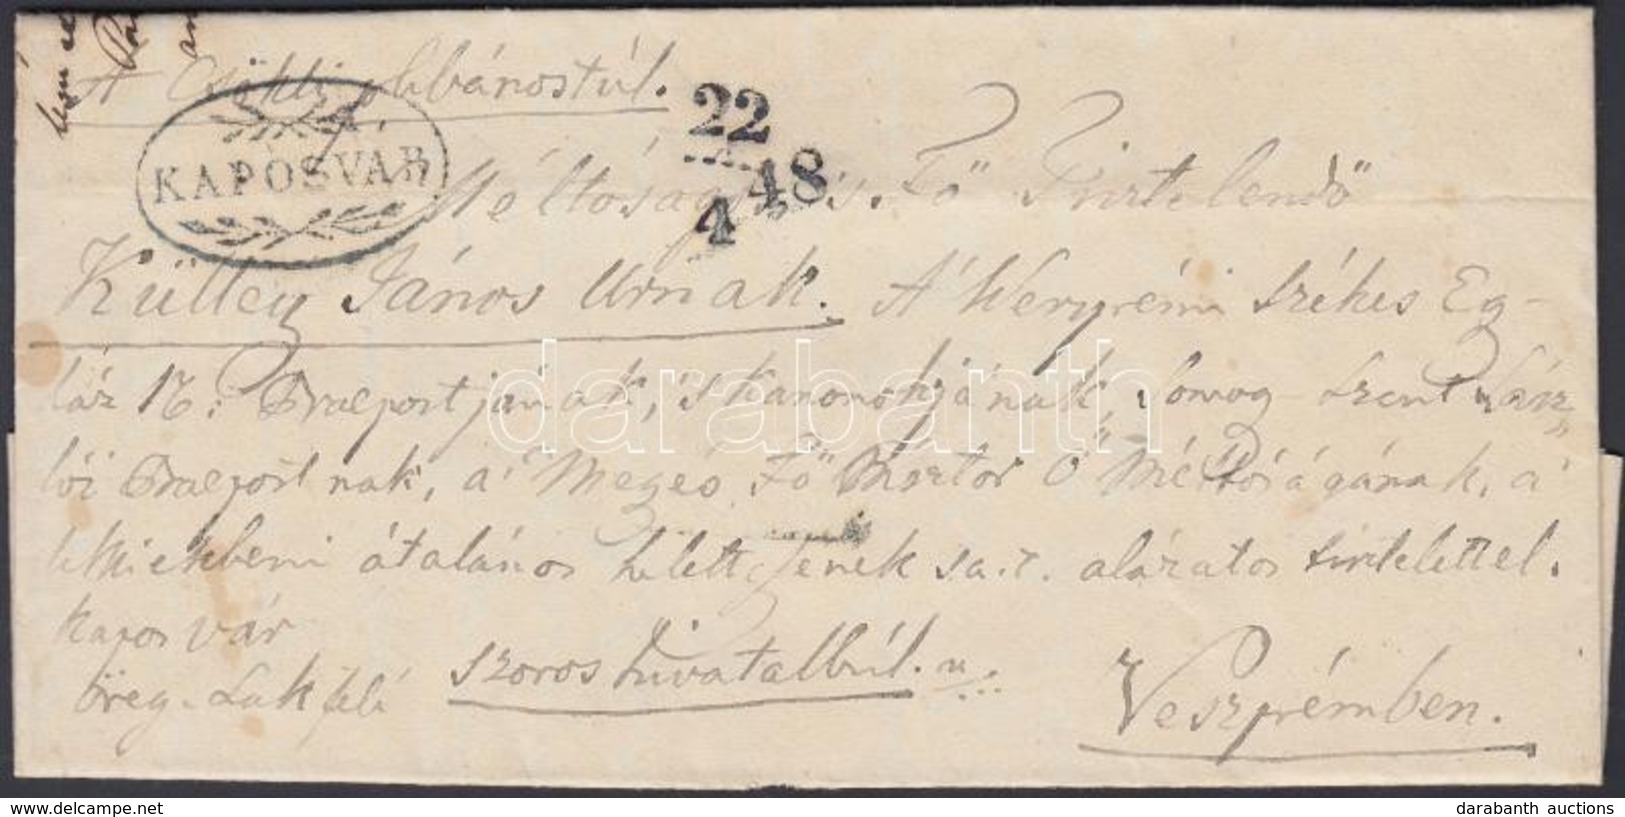 A Csökli plébánostúl.
KAPOSVÁR
22
4 48
Méltóságos, 's. Fő Tisztelendő
Külley János Urnak. A' Weszprémi székes Eg-
ház N. Praepostjának, 's kanonokjának, Somog Szent Lász
lói Praepostnak, a' Megés Fő Pásztor Ő Méltóságának, a'
lelkiekbeni átalános helettesének sa.t. alázatos tisztelettel.
Kaposvár
öreg. Lak felé
szoros hivatalbúl.
Veszprémben.
darabanth
darabanth auctions
www.delcampe.net